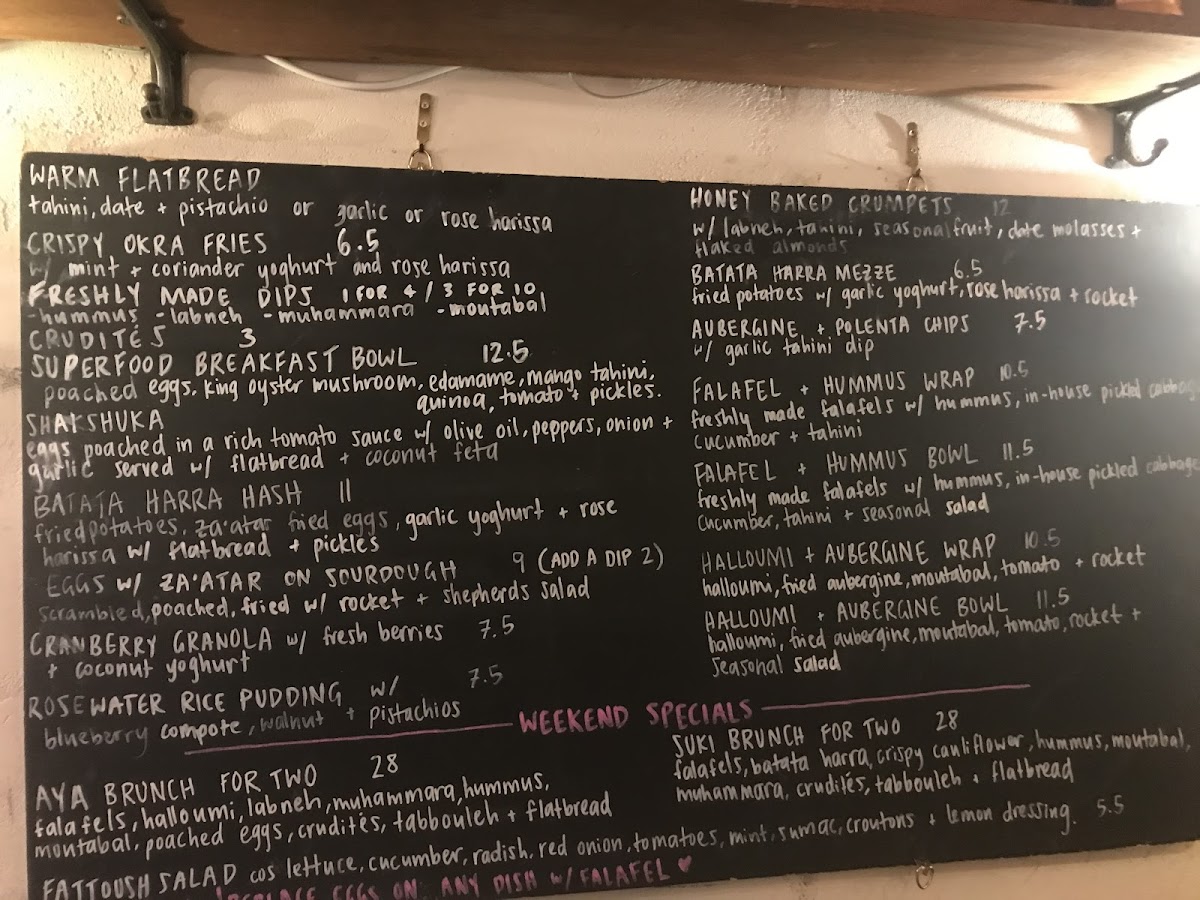 WARM FLATBREAD
tahini, date + pistachio or garlic or rose harissa
CRISPY OKRA FRIES 6.5
w/ mint + coriander yoghurt and rose harissa
FRESHLY MADE DIPS 1 FOR 4 / 3 FOR 10
-hummus -labneh -muhammara -moutabal
CRUDITÉS 3
SUPERFOOD BREAKFAST BOWL 12.5
poached eggs, king oyster mushroom, edamame, mango tahini,
quinoa, tomato + pickles.
SHAKSHUKA
eggs poached in a rich tomato sauce w/ olive oil, peppers, onion +
garlic served w/ flatbread + coconut feta
BATATA HARRA HASH 11
fried potatoes, za'atar fried eggs, garlic yoghurt + rose
harissa w/ flatbread + pickles
EGGS W/ ZA'ATAR ON SOURDOUGH 9 (ADD A DIP 2)
scrambled, poached, fried w/ rocket + shepherds salad
CRANBERRY GRANOLA w/ fresh berries 7.5
+ coconut yoghurt
ROSEWATER RICE PUDDING w/ 7.5
blueberry compote, walnut + pistachios
HONEY BAKED CRUMPETS 12
w/ labneh, tahini, seasonal fruit, date molasses +
flaked almonds
BATATA HARRA MEZZE 6.5
fried potatoes w/ garlic yoghurt, rose harissa + rocket
AUBERGINE + POLENTA CHIPS 7.5
w/ garlic tahini dip
FALAFEL + HUMMUS WRAP 10.5
freshly made falafels w/ hummus, in-house pickled cabbage
cucumber + tahini
FALAFEL + HUMMUS BOWL 11.5
freshly made falafels w/ hummus, in-house pickled cabbage
cucumber, tahini + seasonal salad
HALLOUMI + AUBERGINE WRAP 10.5
halloumi, fried aubergine, moutabal, tomato + rocket
HALLOUMI + AUBERGINE BOWL 11.5
halloumi, fried aubergine, moutabal, tomato, rocket +
seasonal salad
WEEKEND SPECIALS
AYA BRUNCH FOR TWO 28
falafels, halloumi, labneh, muhammara, hummus,
moutabal, poached eggs, crudités, tabbouleh + flatbread
SUKI BRUNCH FOR TWO 28
falafels, batata harra, crispy cauliflower, hummus, moutabal,
muhammara, crudités, tabbouleh + flatbread
FATTOUSH SALAD cos lettuce, cucumber, radish, red onion, tomatoes, mint, sumac, croutons + lemon dressing. 5.5
REPLACE EGGS ON ANY DISH W/ FALAFEL ♥